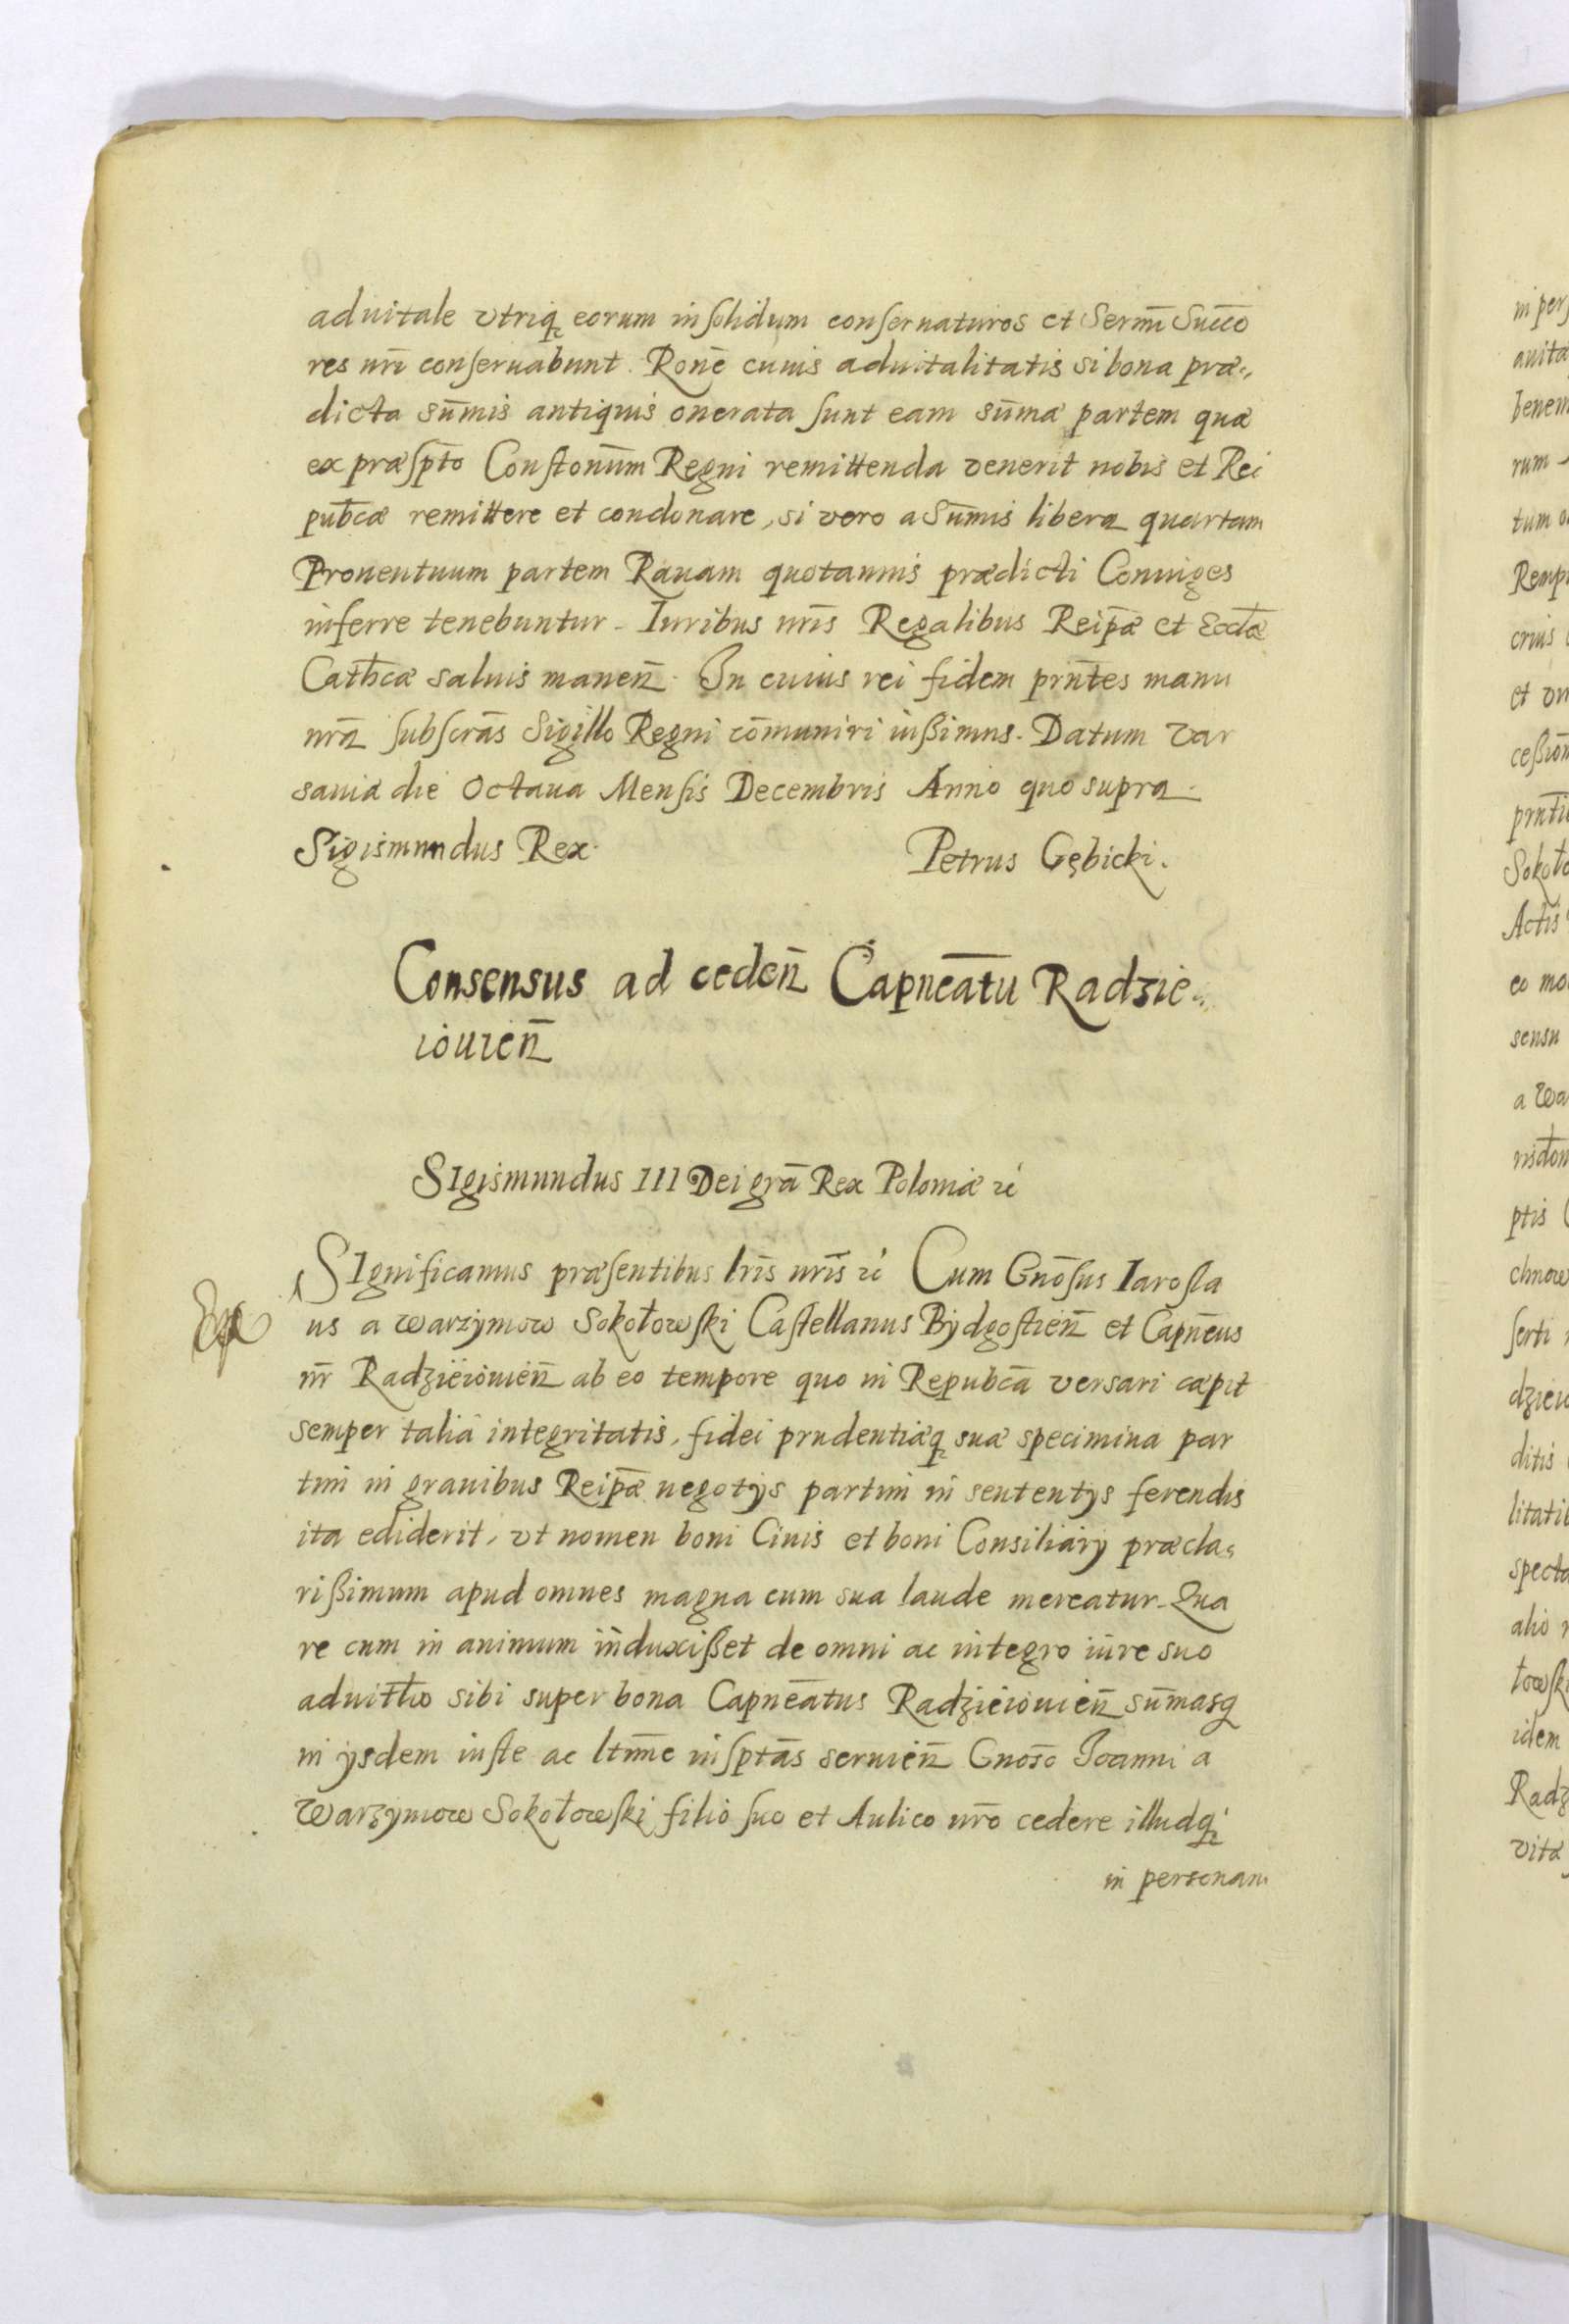 aduitale vtriq eorum in solidum conseruaturos et Sermi Succo
res nri conseruabunt. Rone cuius aduitalitatis si bona præ
dicta summis antiquis onerata sunt eam summæ partem quæ
ex præspto Constonum Regni remittenda venerit nobis et Rei
pubcæ remittere et condonare, si vero a Summis libera quartam
Prouentuum partem Rauam quotannis prædicti Coniuges
inferre tenebuntur. Iuribus nris Regalibus Reipæ et Ecclæ
Cathcæ saluis manen. In cuius rei fidem prntes manu
nra subscras Sigillo Regni communiri iussimus. Datum Var
sauiæ die Octaua Mensis Decembris Anno quo supra.
Sigismundus Rex. Petrus Gębicki.
Consensus ad ceden Capneatu Radzie
iouien
SIgismundus III Dei gra Rex Poloniæ
SIgnificamus præsentibus lris nris Cum Gnosus Iarosla
us a Warzymow Sokołowski Castellanus Bydgostien et Capneus
nr Radzieiouien ab eo tempore quo in Repubca versari cæpit
semper talia integritatis, fidei prudentiæq suæ specimina par
tim in grauibus Reipæ negotys partim in sententys ferendis
ita ediderit, vt nomen boni Ciuis et boni Consiliary præcla
rissimum apud omnes magna cum sua laude mereatur. Qua
re cum in animum induxisset de omni ac integro iure suo
aduitlo sibi super bona Capneatus Radzieiouien summasq
in ysdem iuste ac ltme insptas seruien Gnoso Ioanni a
Warzymow Sokołowski filio suo et Aulico nro cedere illudq
in personam
in pers
auita
benem
rum
tum
Remp
crius
et
cession
prnti
Sokoł
Actis
eo mo
sensu
a Wa
ptis
chnow
serti
dzieio
ditis
litatib
specta
alio
łowski
idem
Radz
vitæ